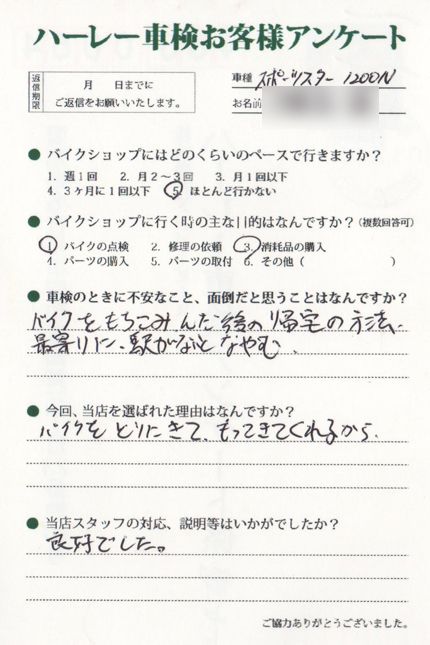 ハーレー車検お客様アンケート
返信期限
月　日までに
ご返信をお願いいたします。
車種 スポーツスター 1200N
お名前
● バイクショップにはどのくらいのペースで行きますか？
1. 週1回　2. 月2～3回　3. 月1回以下
4. 3ヶ月に1回以下　5. ほとんど行かない
● バイクショップに行く時の主な目的はなんですか？（複数回答可）
1. バイクの点検　2. 修理の依頼　3. 消耗品の購入
4. パーツの購入　5. パーツの取付　6. その他（　　　）
● 車検のときに不安なこと、面倒だと思うことはなんですか？
バイクをもちこみんだ後の帰宅の方法、
最寄りに、駅がないとなやむ、
● 今回、当店を選ばれた理由はなんですか？
バイクをとりにきて、もってきてくれるから、
● 当店スタッフの対応、説明等はいかがでしたか？
良好でした。
ご協力ありがとうございました。